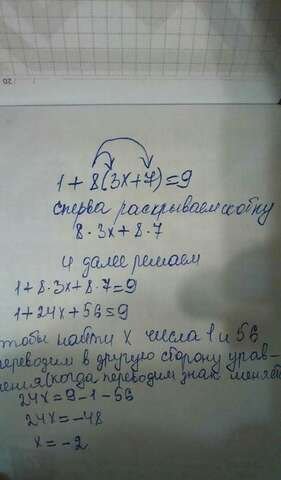 1+8(3x+7)=9
сперва раскрываем скобку
8·3x+8·7
и далее решаем
1+8·3x+8·7=9
1+24x+56=9
чтобы найти x числа 1 и 56
переводим в другую сторону урав-
нения (когда переводим знак меняет
24x=9-1-56
24x=-48
x=-2